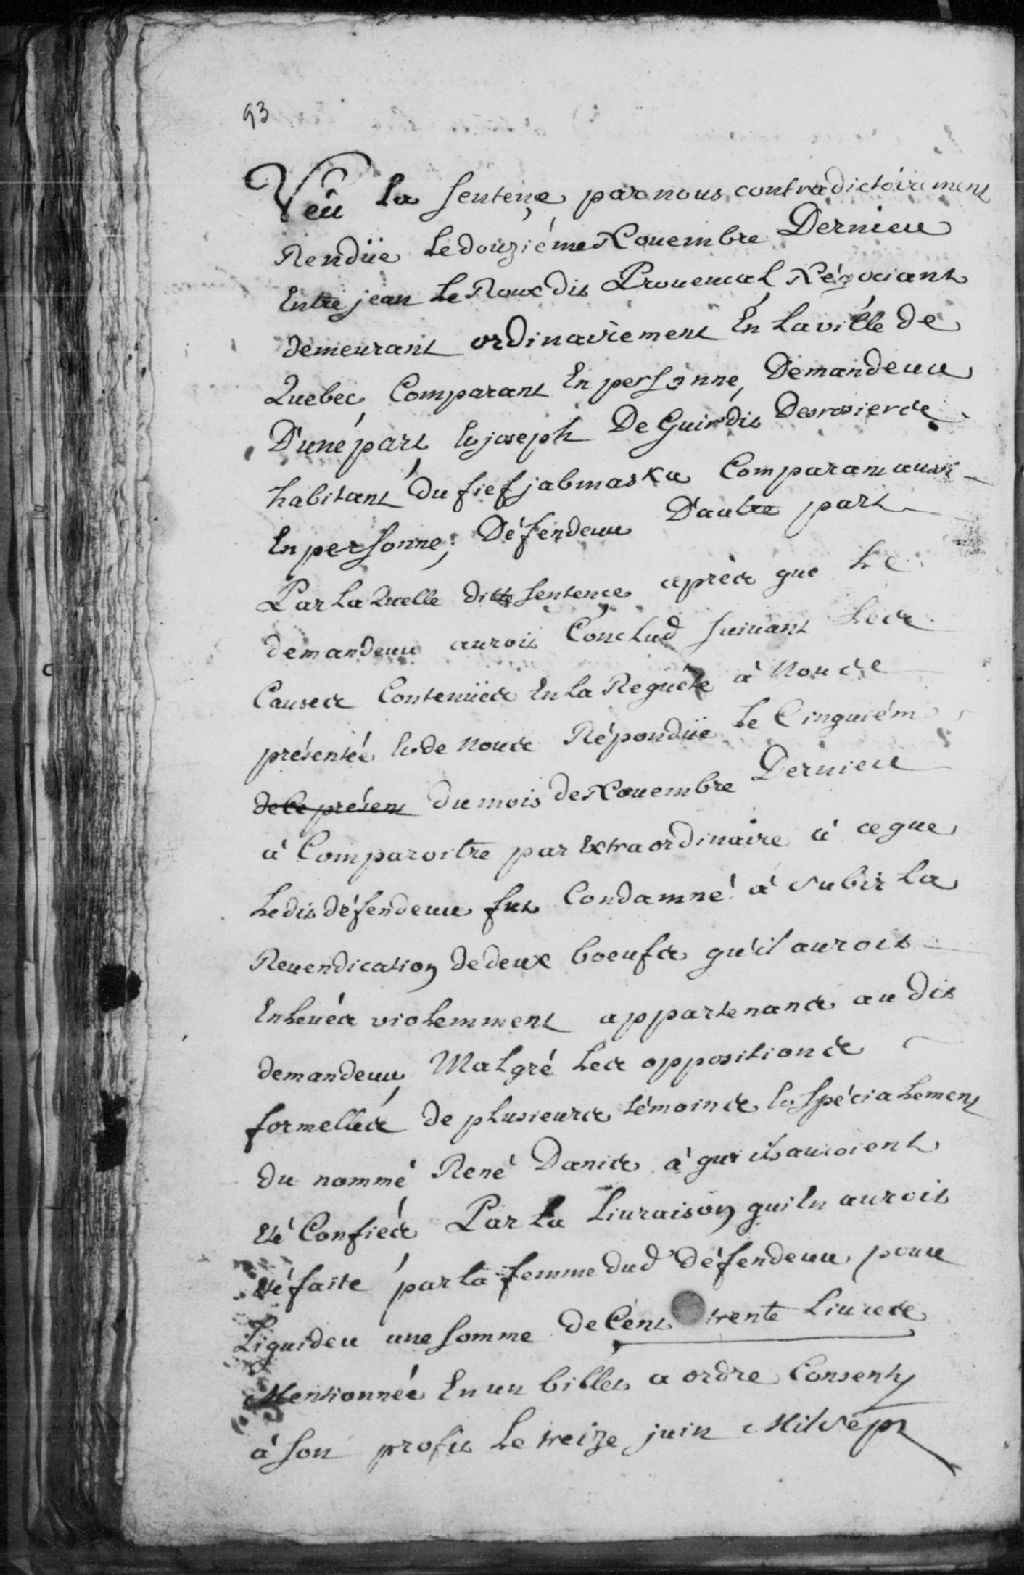 93
Veû la sentençe par nous contradictoirement
Rendüe le douziéme Nouembre Dernier
Entre jean Le Roux dit Prouencal Négociant
demeurant ordinairement En la ville de
Quebec Comparant En personne, Demandeur
D'une part Et joseph De Guir dit Desrosiers
habitant du fief jabmaska Comparant aussi
En personne; Défendeur D'autre part
Par la quelle ditte sentençe après que Le
demandeur auroit Conclud suiuant Les
Causes Contenües En la Requéte à Nous
présentée Et de Nous Répondüe le Cinquiém
de Ce présent du mois de Nouembre Dernier
à Comparoitre par Extraordinaire à ce que
Ledit défendeur fut Condamné à subir la
Reuendication de deux boeufs qu'il auroit
Enleués violemment appartenans au dit
demandeur Malgré les oppositions
formelles de plusieurs témoins Et spécialement
du nommé René Danis à qui ils auroient
Eté Confiés Par la Liuraison qui En auroit
Eté faite par la femme dud. Défendeur pour
Liquider une somme de Cent trente Liures
Mentionnée En un billet a ordre Consenty
à son profit Le treize juin Mil Sept